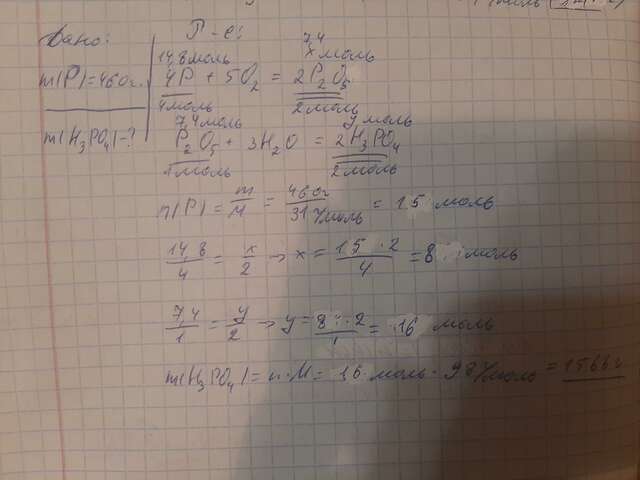 Дано:
Р-е:
m(P)=460г.
m(H₃PO₄)-?
14,8моль
7,4
x моль
4P + 5O₂ = 2P₂O₅
4моль
2моль
7,4моль
y моль
P₂O₅ + 3H₂O = 2H₃PO₄
1моль
2моль
n(P) = m/M = 460г/31г/моль = 15 моль
14,8/4 = x/2 → x = 15·2/4 = 8 моль
7,4/1 = y/2 → y = 8·2/1 = 16 моль
m(H₃PO₄) = n·M = 16 моль · 98г/моль = 1566г